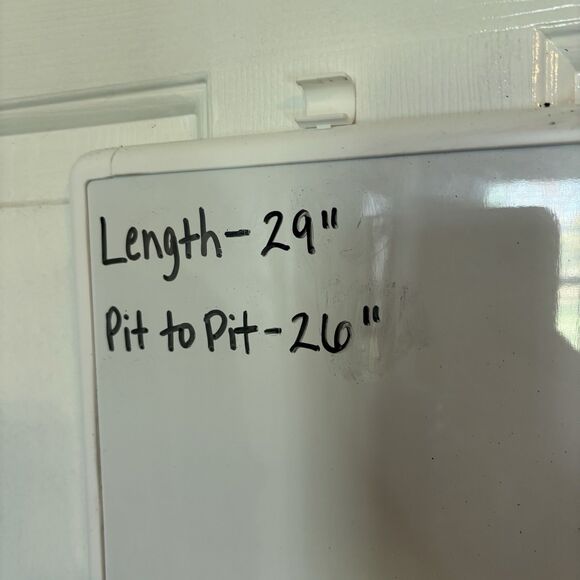 Length - 29"
Pit to Pit - 26"